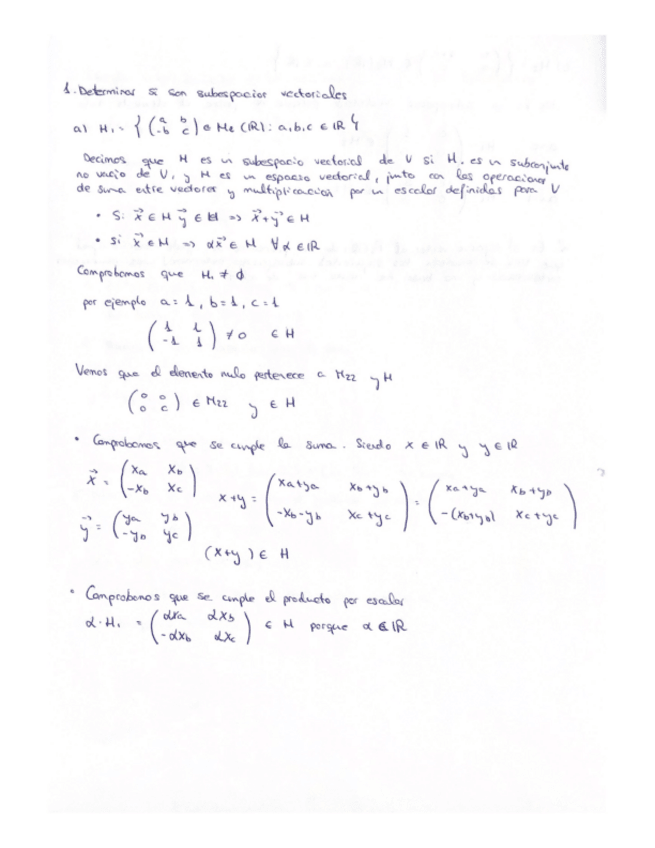 1. Determinar si son subespacios vectoriales
a) H₁ = { ( a b ; -b c ) ∈ M₂ (ℝ) : a, b, c ∈ ℝ }
Decimos que H es un subespacio vectorial de V si H, es un subconjunto
no vacio de V, y H es un espacio vectorial, junto con las operaciones
de suma entre vectores y multiplicacion por un escalar definidas para V
• Si x⃗ ∈ H y⃗ ∈ H => x⃗+y⃗ ∈ H
• si x⃗ ∈ H => αx⃗ ∈ H ∀ α ∈ ℝ
Comprobamos que H₁ ≠ ∅
por ejemplo a = 1, b = 1, c = 1
( 1 1 ; -1 1 ) ≠ 0 ∈ H
Vemos que el elemento nulo pertenece a M22 y H
( 0 0 ; 0 c ) ∈ M22 y ∈ H
• Comprobamos que se cumple la suma. Siendo x ∈ ℝ y y ∈ ℝ
x⃗ = ( xa xb ; -xb xc )
x+y = ( xa+ya xb+yb ; -xb-yb xc+yc ) = ( xa+ya xb+yb ; -(xb+yb) xc+yc )
y⃗ = ( ya yb ; -yb yc )
(x+y) ∈ H
• Comprobamos que se cumple el producto por escalar
α·H₁ = ( αxa αxb ; -αxb αxc ) ∈ H porque α ∈ ℝ